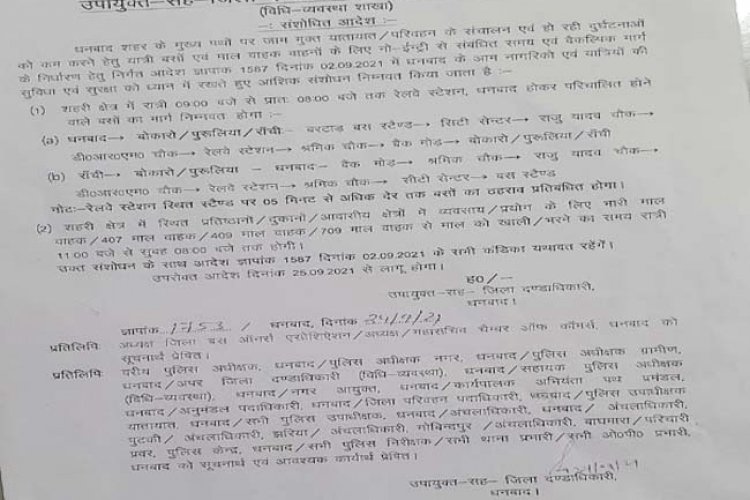 उपायुक्त-सह-जिला
(विधि-व्यवस्था शाखा)
-: संशोधित आदेश :-
धनबाद शहर के मुख्य पथों पर जाम मुक्त यातायात/परिवहन के संचालन एवं हो रही दुर्घटनाओं
को कम करने हेतु यात्री बसों एवं माल वाहक वाहनों के लिए नो-ईन्ट्री से संबंधित समय एवं वैकल्पिक मार्ग
के निर्धारण हेतु निर्गत आदेश ज्ञापांक 1587 दिनांक 02.09.2021 में धनबाद के आम नागरिकों एवं यात्रियों की
सुविधा एवं सुरक्षा को ध्यान में रखते हुए आंशिक संशोधन निम्नवत किया जाता है :-
(1) शहरी क्षेत्र में रात्री 09:00 बजे से प्रातः 08:00 बजे तक रेलवे स्टेशन, धनबाद होकर परिचालित होने
वाले बसों का मार्ग निम्नवत होगा :-
(a) धनबाद→ बोकारो/पुरूलिया/राँची:- बरटाड़ बस स्टैण्ड→ सिटी सेन्टर→ राजु यादव चौक→
डी०आर०एम० चौक→ रेलवे स्टेशन→ श्रमिक चौक→ बैंक मोड़→ बोकारो/पुरूलिया/राँची
(b) राँची→ बोकारो/पुरूलिया - धनबाद:- बैंक मोड़→ श्रमिक चौक→ राजु यादव चौक→
डी०आर०एम० चौक→ रेलवे स्टेशन→ श्रमिक चौक→ सीटी सेन्टर→ बस स्टैण्ड
नोटः-रेलवे स्टेशन स्थित स्टैण्ड पर 05 मिनट से अधिक देर तक बसों का ठहराव प्रतिबंधित होगा।
(2) शहरी क्षेत्र में स्थित प्रतिष्ठानों/दुकानों/आवासीय क्षेत्रों में व्यवसाय/प्रयोग के लिए भारी माल
वाहक/407 माल वाहक/409 माल वाहक/709 माल वाहक से माल को खाली/भरने का समय रात्री
11:00 बजे से सुबह 08:00 बजे तक होगी।
उक्त संशोधन के साथ आदेश ज्ञापांक 1587 दिनांक 02.09.2021 के सभी कंडिका यथावत रहेंगें।
उपरोक्त आदेश दिनांक 25.09.2021 से लागू होगा।
ह०/-
उपायुक्त-सह- जिला दण्डाधिकारी,
धनबाद।
ज्ञापांक 1753 / धनबाद, दिनांक 24/9/21
प्रतिलिपिः अध्यक्ष जिला बस ऑनर्स एशोशिएशन/अध्यक्ष/महासचिव चैम्बर ऑफ कॉमर्स, धनबाद को
सूचनार्थ प्रेषित।
प्रतिलिपिः वरीय पुलिस अधीक्षक, धनबाद/पुलिस अधीक्षक नगर, धनबाद/पुलिस अधीक्षक ग्रामीण,
धनबाद/अपर जिला दण्डाधिकारी (विधि-व्यवस्था), धनबाद/सहायक पुलिस अधीक्षक
(विधि-व्यवस्था), धनबाद/नगर आयुक्त, धनबाद/कार्यपालक अभियंता पथ प्रमंडल,
धनबाद/अनुमंडल पदाधिकारी, धनबाद/जिला परिवहन पदाधिकारी, धनबाद/पुलिस उपाधीक्षक
यातायात, धनबाद/सभी पुलिस उपाधीक्षक, धनबाद/अंचलाधिकारी, धनबाद/ अंचलाधिकारी,
पुटकी/ अंचलाधिकारी, झरिया/ अंचलाधिकारी, गोबिन्दपुर /अंचलाधिकारी, बाघमारा/परिचारी
प्रवर, पुलिस केन्द्र, धनबाद/सभी पुलिस निरीक्षक/सभी थाना प्रभारी/सभी ओ०पी० प्रभारी,
धनबाद को सूचनार्थ एवं आवश्यक कार्यार्थ प्रेषित।
उपायुक्त-सह- जिला दण्डाधिकारी,
धनबाद।